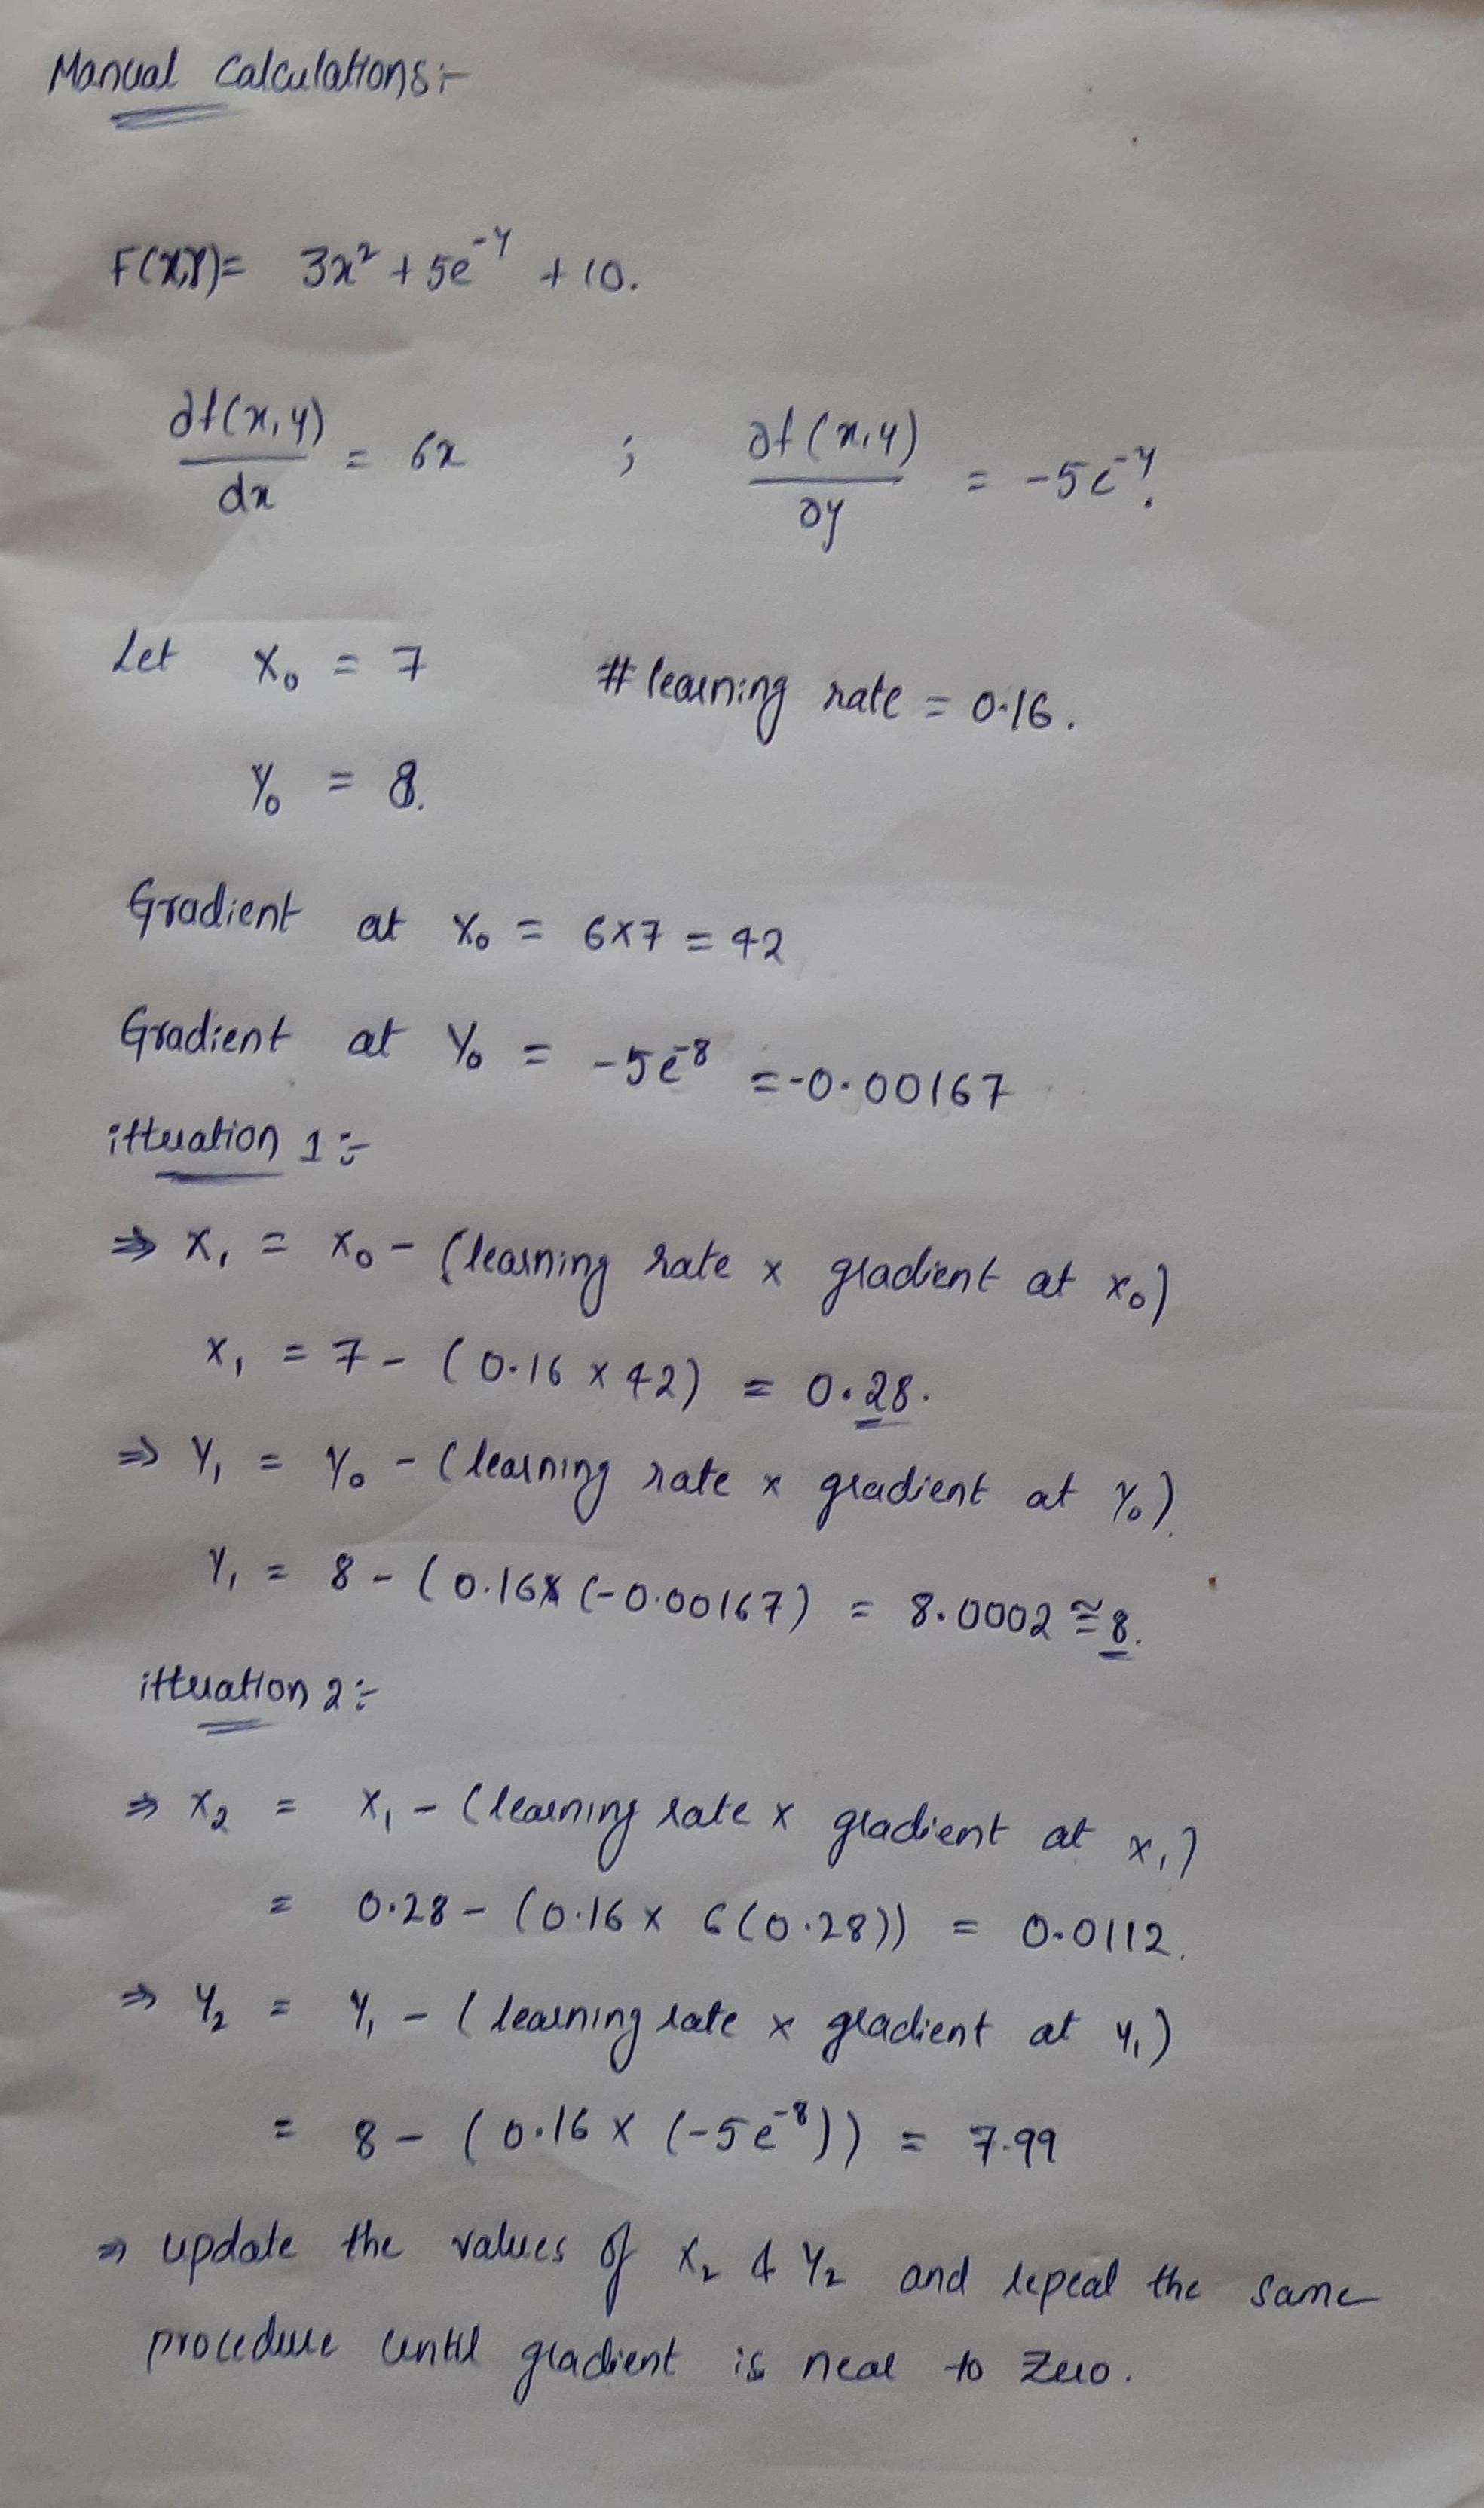 Manual Calculations:-
F(x,y)= 3x² + 5e⁻ʸ + 10.
∂f(x,y)/dx = 6x ; ∂f(x,y)/∂y = -5e⁻ʸ.
Let x₀ = 7 # learning rate = 0.16.
y₀ = 8.
Gradient at x₀ = 6x7 = 42
Gradient at y₀ = -5e⁻⁸ = -0.00167
itteration 1:-
⇒ x₁ = x₀ - (learning rate x gradient at x₀)
x₁ = 7 - (0.16 x 42) = 0.28.
⇒ y₁ = y₀ - (learning rate x gradient at y₀).
y₁ = 8 - (0.16x (-0.00167) = 8.0002 ≅ 8.
itteration 2:-
⇒ x₂ = x₁ - (learning rate x gradient at x₁)
= 0.28 - (0.16 x 6(0.28)) = 0.0112.
⇒ y₂ = y₁ - (learning rate x gradient at y₁)
= 8 - (0.16 x (-5e⁻⁸)) = 7.99
⇒ update the values of x₂ & y₂ and repeat the same
procedure until gradient is near to zero.